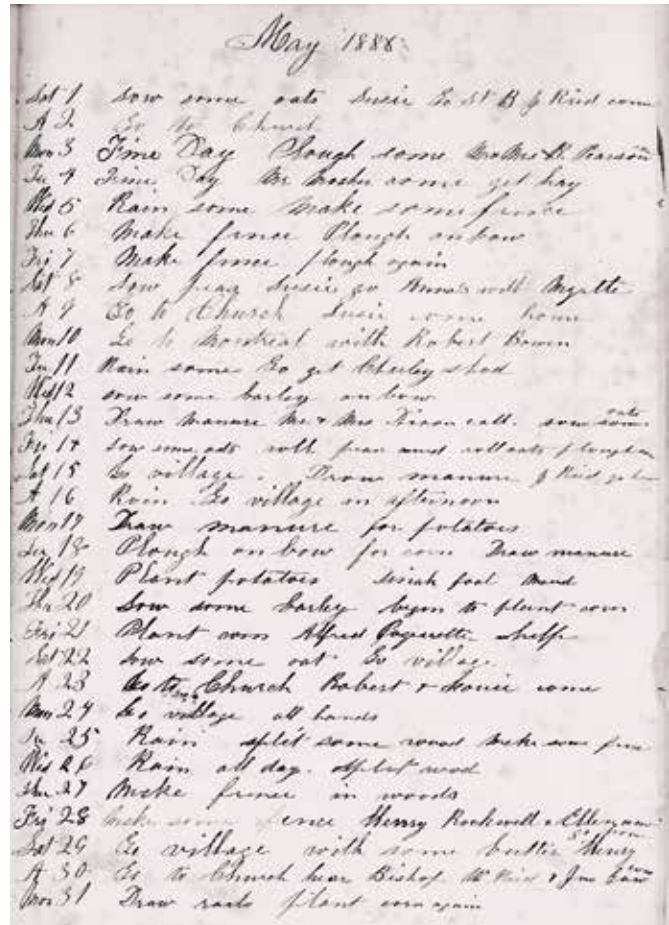 May 1888
Sat 1 Sow some oats Susie Go St B J Reid come
A 2 Go to Church
Mon 3 Fine Day Plough some Mr Mrs R. Pearson
Tu 4 Fine Day Mr come get hay
Wed 5 Rain some make some fence
Thu 6 Make fence Plough on bow
Fri 7 Make fence plough again
Sat 8 Sow peas Susie go with
A 9 Go to Church Susie come home
Mon 10 Go to Montreal with Robert Bowen
Tu 11 Rain some Go get Charley shod
Wed 12 sow some barley on bow
Thu 13 Draw manure Mr & Mrs Dixon call. sow some oats
Fri 14 sow some oats roll peas and roll oats plough
Sat 15 Go village. Draw manure J Reid
A 16 Rain Go village in afternoon
Mon 17 Draw manure for potatoes
Tu 18 Plough on bow for corn Draw manure
Wed 19 Plant potatoes foal
Thu 20 Sow some barley begin to plant corn
Fri 21 Plant corn Alfred help
Sat 22 Sow some oat Go village
A 23 Go to Church Robert & come
Mon 24 Go village all hands
Tu 25 Rain split some wood make some fence
Wed 26 Rain all day. split wood
Thu 27 Make fence in woods
Fri 28 Make some fence Henry Rockwell & Ellen
Sat 29 Go village with some butter Henry
A 30 Go to Church hear Bishop W Reid &
Mon 31 Draw rails plant corn again